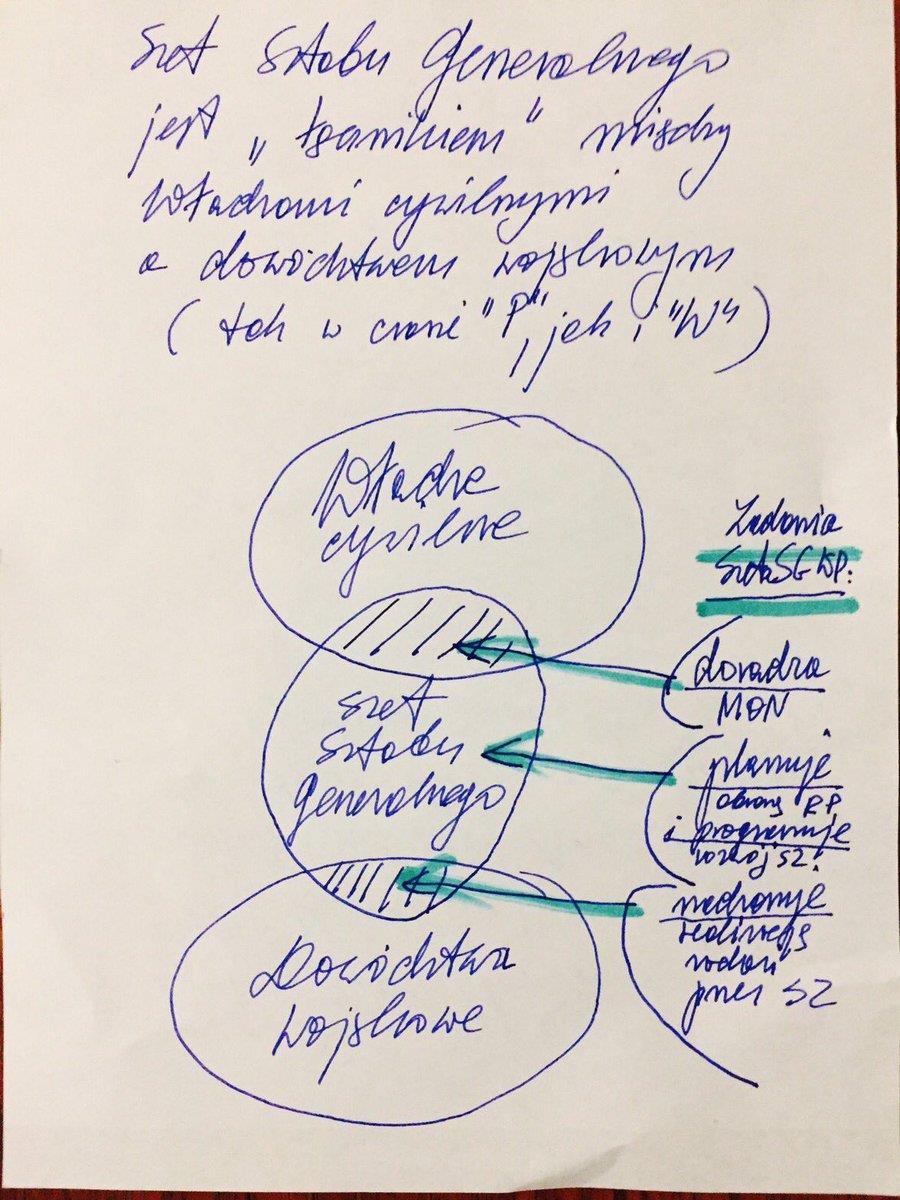 Szef Sztabu Generalnego
jest „łącznikiem" między
władzami cywilnymi
a dowództwem wojskowym
(tak w czasie "P", jak i "W")
Władze
cywilne
Szef
Sztabu
Generalnego
Dowództwa
wojskowe
Zadania
Szefa SG WP:
doradza
MON
planuje
obronę RP
i programuje
rozwój SZ
nadzoruje
realizację
zadań
przez SZ